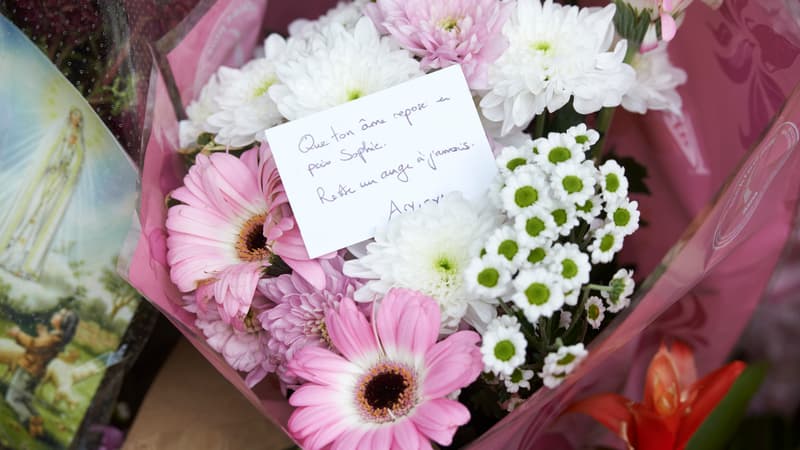 Que ton âme repose en
paix Sophie.
Reste un ange à jamais.